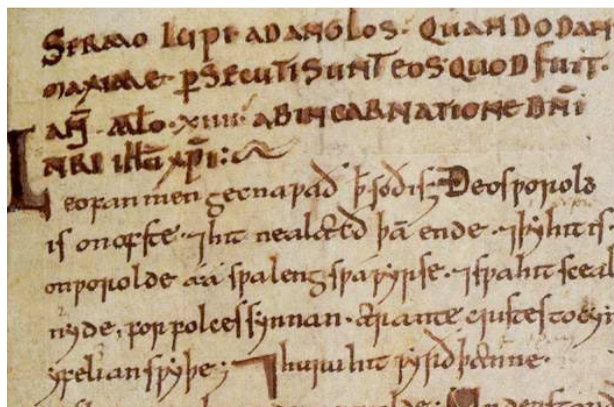 SERMO LUPI AD ANGLOS· QUANDO DAN
MAXIME P̄SECUTI SUNT EOS· QUOD FUIT·
AN̄· M̄LO· XIIII· AB INCARNATIONE DN̄I
NRI IH̄U XP̄I:
Leofan men gecnaƿað ꝥ soð is; Ðeos ƿorold
is on ofste· ⁊ hit nealæcð þā ende· ⁊ þy hit is·
on ƿorolde aá sƿa leng sƿa ƿyrse· ⁊ sƿa hit sceal
nyde· for folces synnan· ær antecristes tocym
yfelian sƿyþe; ⁊ huru hit ƿyrð þænne·